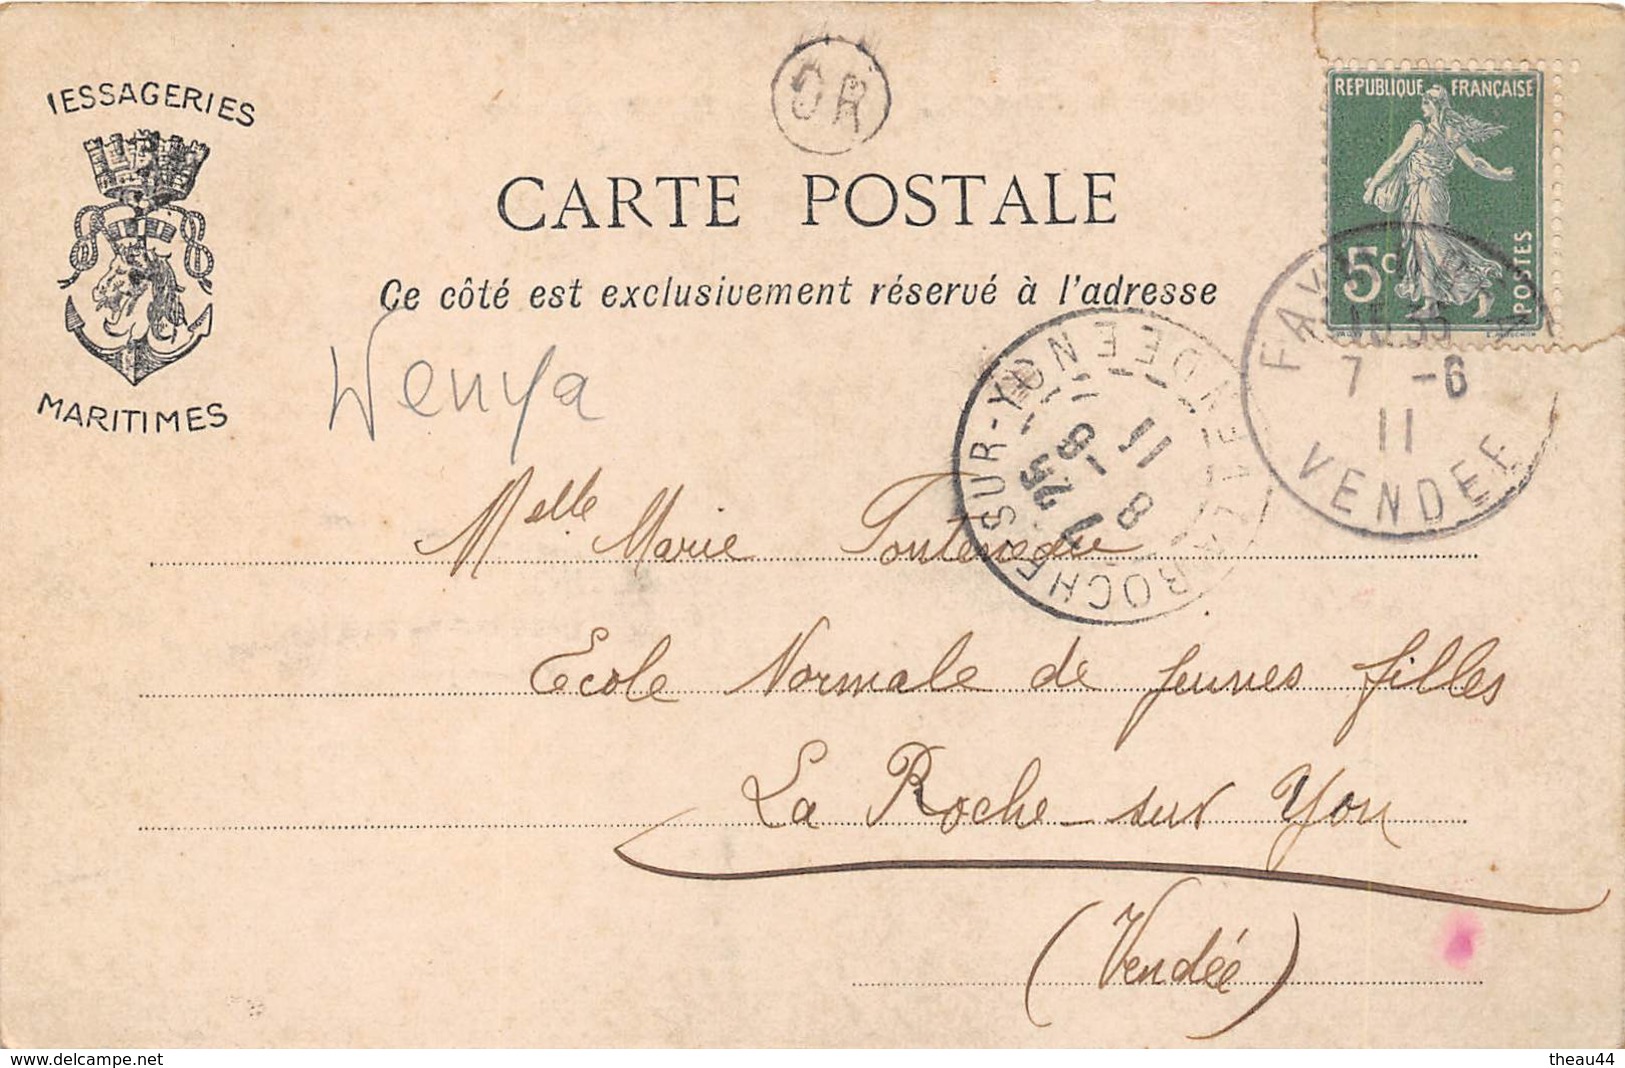 IESSAGERIES
MARITIMES
OR
CARTE POSTALE
Ce côté est exclusivement réservé à l'adresse
REPUBLIQUE FRANÇAISE
5c
POSTES
7 -6
11
VENDEE
ROCHE-SUR-YON
VENDEE
7 25
8 -6
11
Melle Marie
Ecole Normale de jeunes filles
La Roche-sur Yon
(Vendée)
www.delcampe.net
theau44